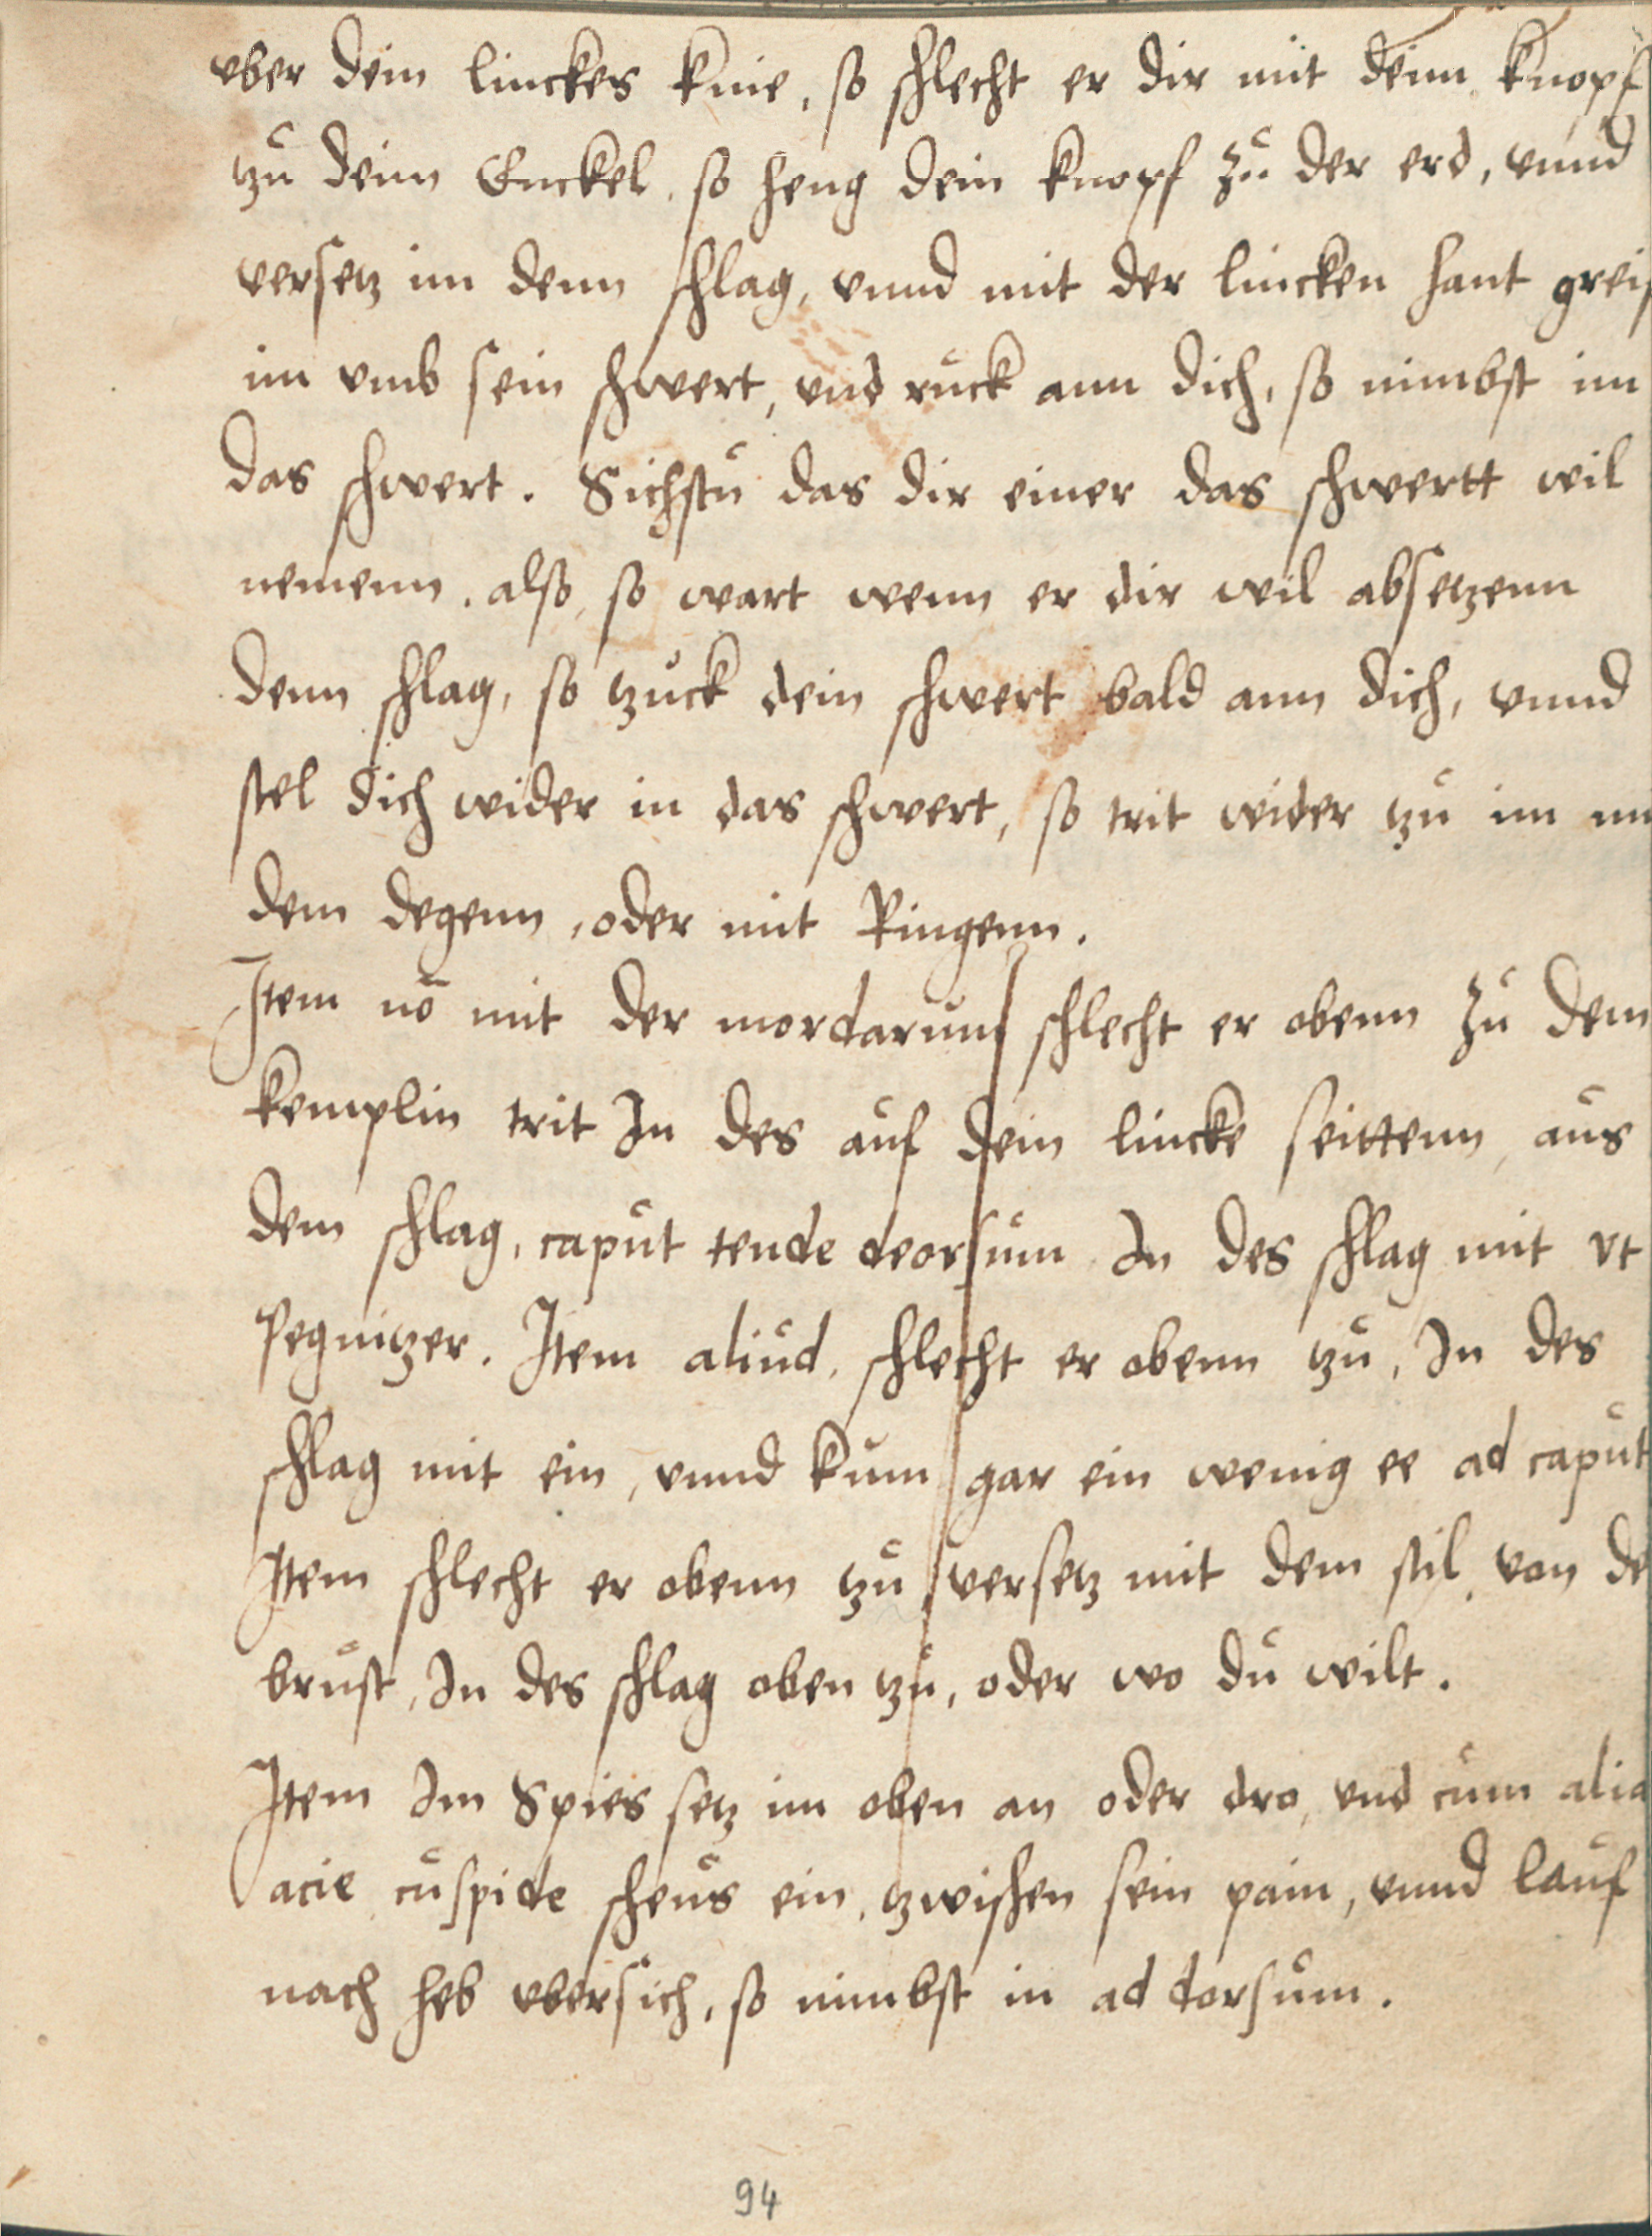 vber dein linckes knie, so schlecht er dir mit deim knopf
tzu deim Enckel, so heng dein knopf zu der erd, vnnd
versetz im denn schlag, vnnd mit der lincken hant greif
im vmb sein schwert, vnd ruck ann dich, so nimbst im
das schwert. Sichstu das dir einer das schwertt wil
nemenn, also, so wart wenn er dir wil absetzenn
denn schlag, so tzuck dein schwert bald ann dich, vnnd
stel dich wider in das schwert, so trit wider tzu im
dem degenn, oder mit Ringenn.
Item nō mit der mordarum schlecht er obenn zu dem
kemplin trit In des auf dein lincke seittenn, aus
dem schlag, caput tende deorsum In des schlag mit vt
pegnitzer. Item aliud, schlecht er obenn tzu, In des
schlag mit ein, vnnd kum gar ein wenig ee ad caput
Item schlecht er obenn tzu versetz mit dem stil, von de
brust, In des schlag oben tzu, oder wo du wilt.
Item Im Spies setz im oben an oder dro, vnd cum alia
acie cuspide scheus ein, tzwischen sein pain, vnnd lauf
nach heb vbersich, so nimbst in ad dorsum.
94